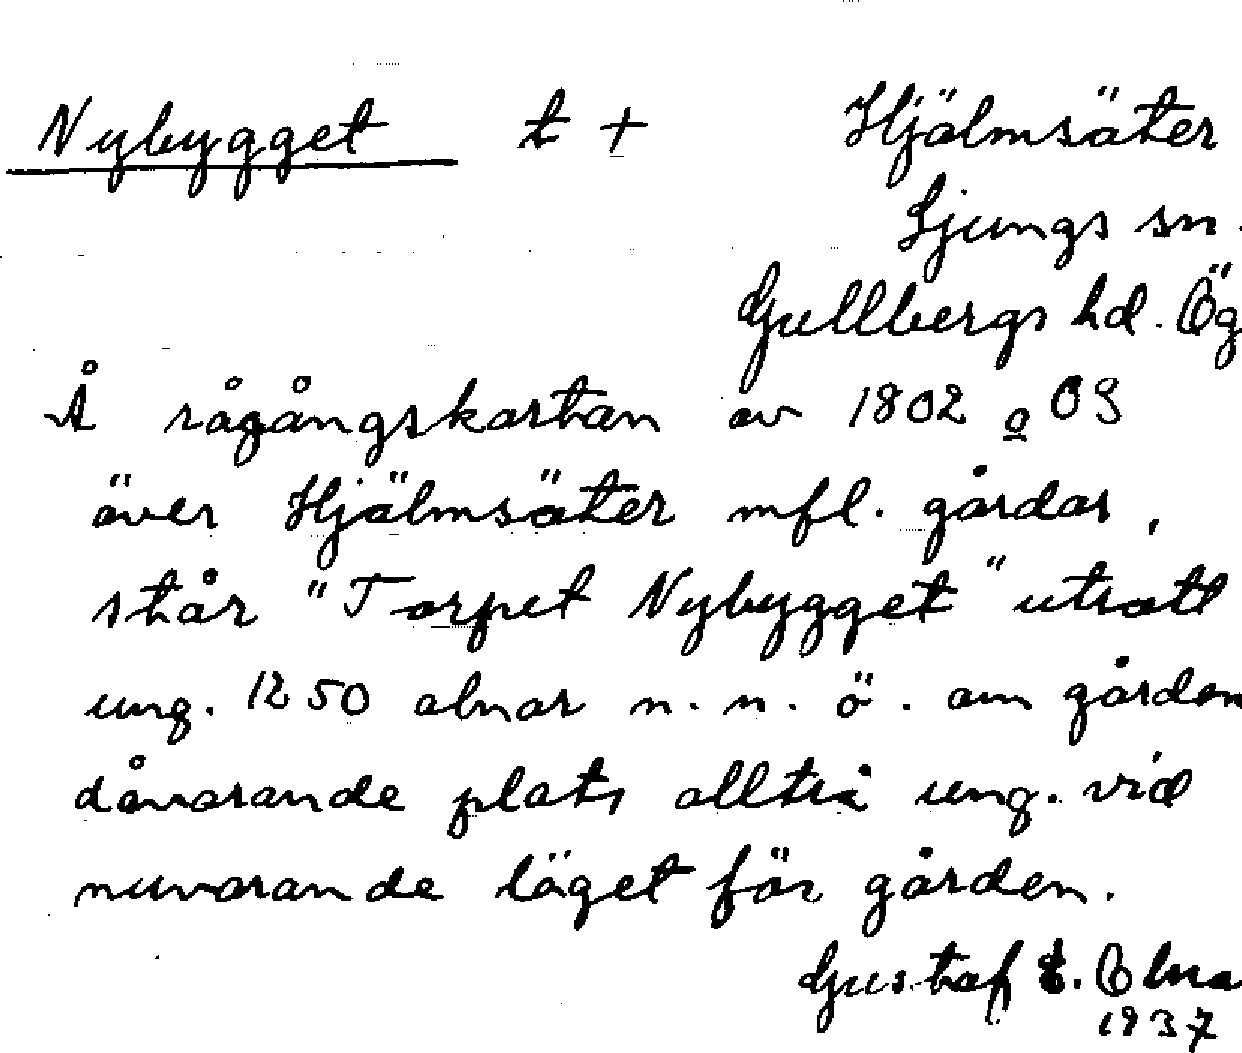 Nybygget t + Hjälmsäter
Ljungs sn.
Gullbergs hd. Ög
Å rågångskartan av 1802 o 03
över Hjälmsäter mfl. gårdar,
står "Torpet Nybygget" utsatt
ung. 1250 alnar n. n. ö. om gården
dåvarande plats alltså ung. vid
nuvarande läget för gården.
Gustaf
1937